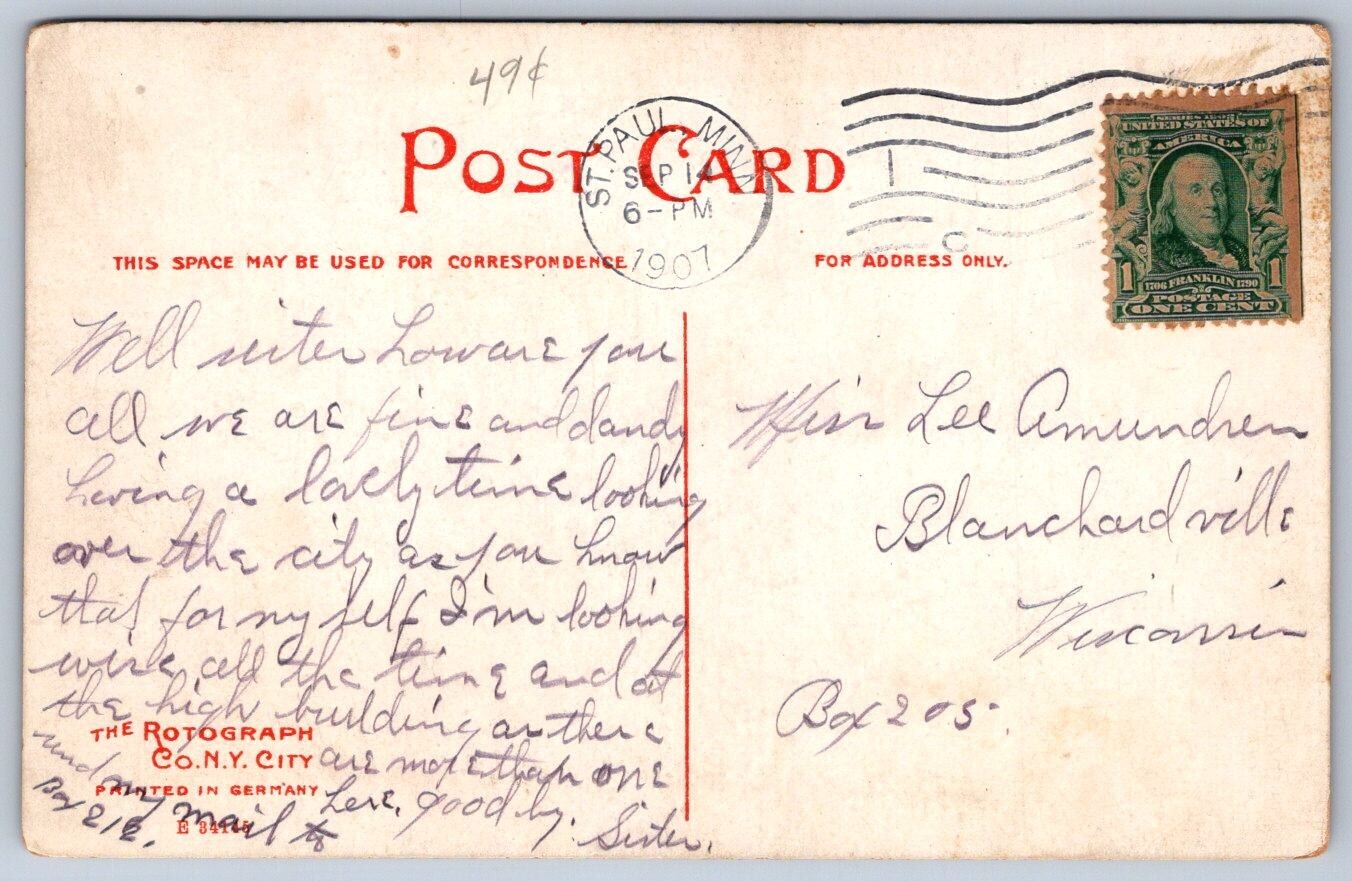 49¢
POST CARD
ST. PAUL, MINN.
SEP 14
6-PM
1907
1
C
SERIES 1902
UNITED STATES OF
AMERICA
1 1706 FRANKLIN 1790 1
POSTAGE
ONE CENT
THIS SPACE MAY BE USED FOR CORRESPONDENCE
FOR ADDRESS ONLY.
Well sister how are you
all we are fine and dandy
having a lovely time looking
over the city as you know
that for my self I'm looking
wise all the time and at
the high building as there
are more than one
here. good by.
Sister.
send my mail to
Box 212.
Miss Lee Amundsen
Blanchardville
Wisconsin
Box 205.
THE ROTOGRAPH
CO. N.Y. CITY
PRINTED IN GERMANY